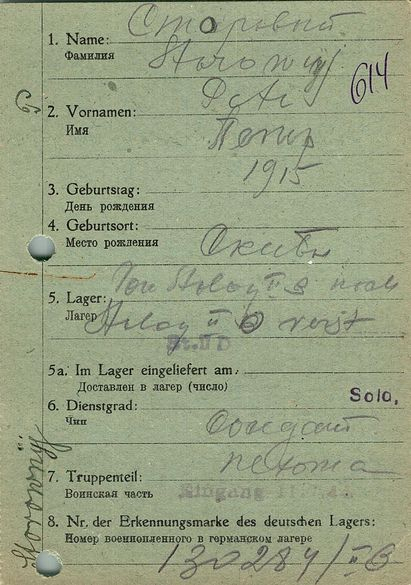 1. Name:
Фамилия
Сторовый
Storowyj
614
2. Vornamen:
Имя
Petr
Петр
1915
3. Geburtstag:
День рождения
4. Geburtsort:
Место рождения
5. Lager:
Лагер
Von Stalag II B nach
Stalag II D verst
St. II D
5a. Im Lager eingeliefert am:
Доставлен в лагер (число)
6. Dienstgrad:
Чин
Sold.
солдат
пехота
7. Truppenteil:
Воинская часть
Eingang
8. Nr. der Erkennungsmarke des deutschen Lagers:
Номер военнопленного в германском лагере
130284/II B
Storowyj